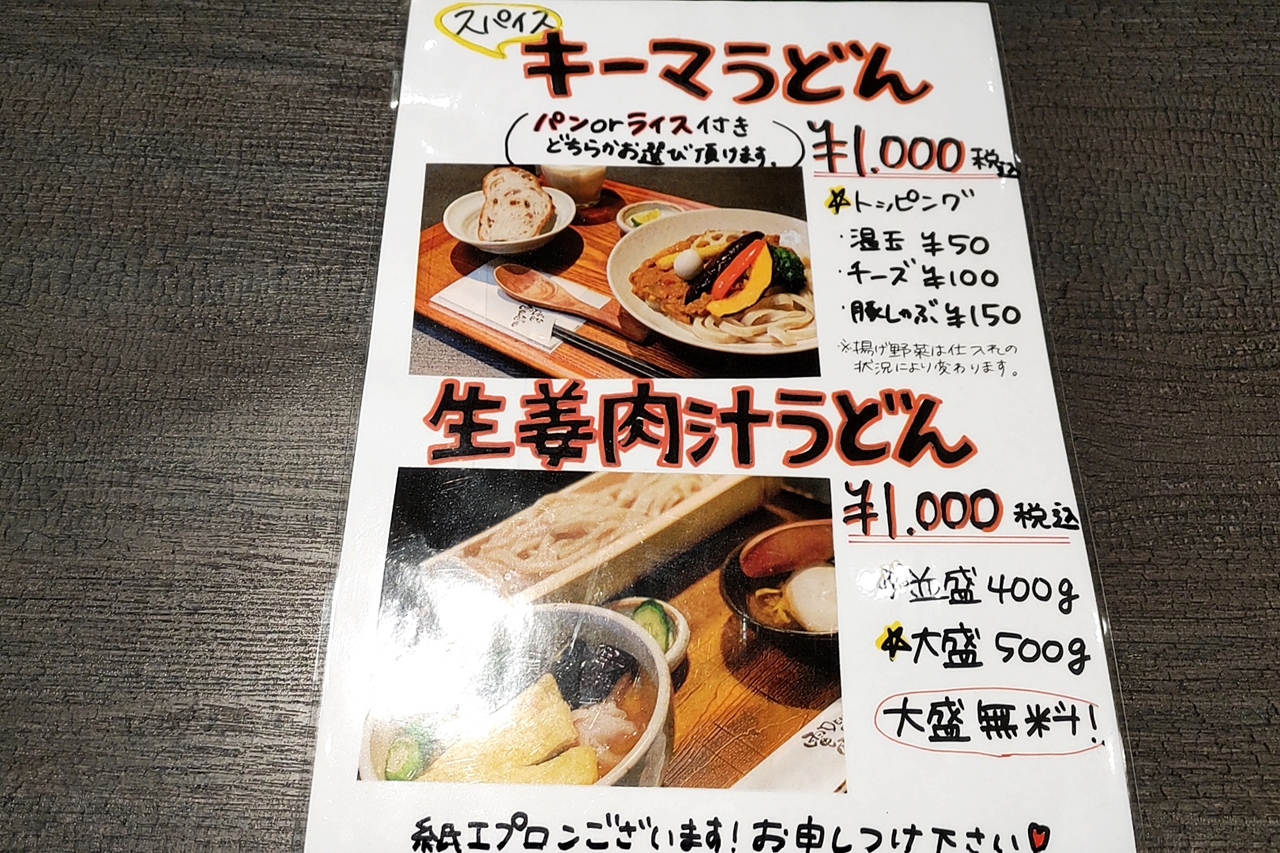 スパイス
キーマうどん
(パンorライス付き
どちらかお選び頂けます。)
¥1.000 税込
☆トッピング
・温玉 ¥50
・チーズ ¥100
・豚しゃぶ ¥150
※揚げ野菜は仕入れの
状況により変わります。
生姜肉汁うどん
¥1.000 税込
☆並盛 400g
☆大盛 500g
大盛無料!
紙エプロンございます!お申しつけ下さい♥